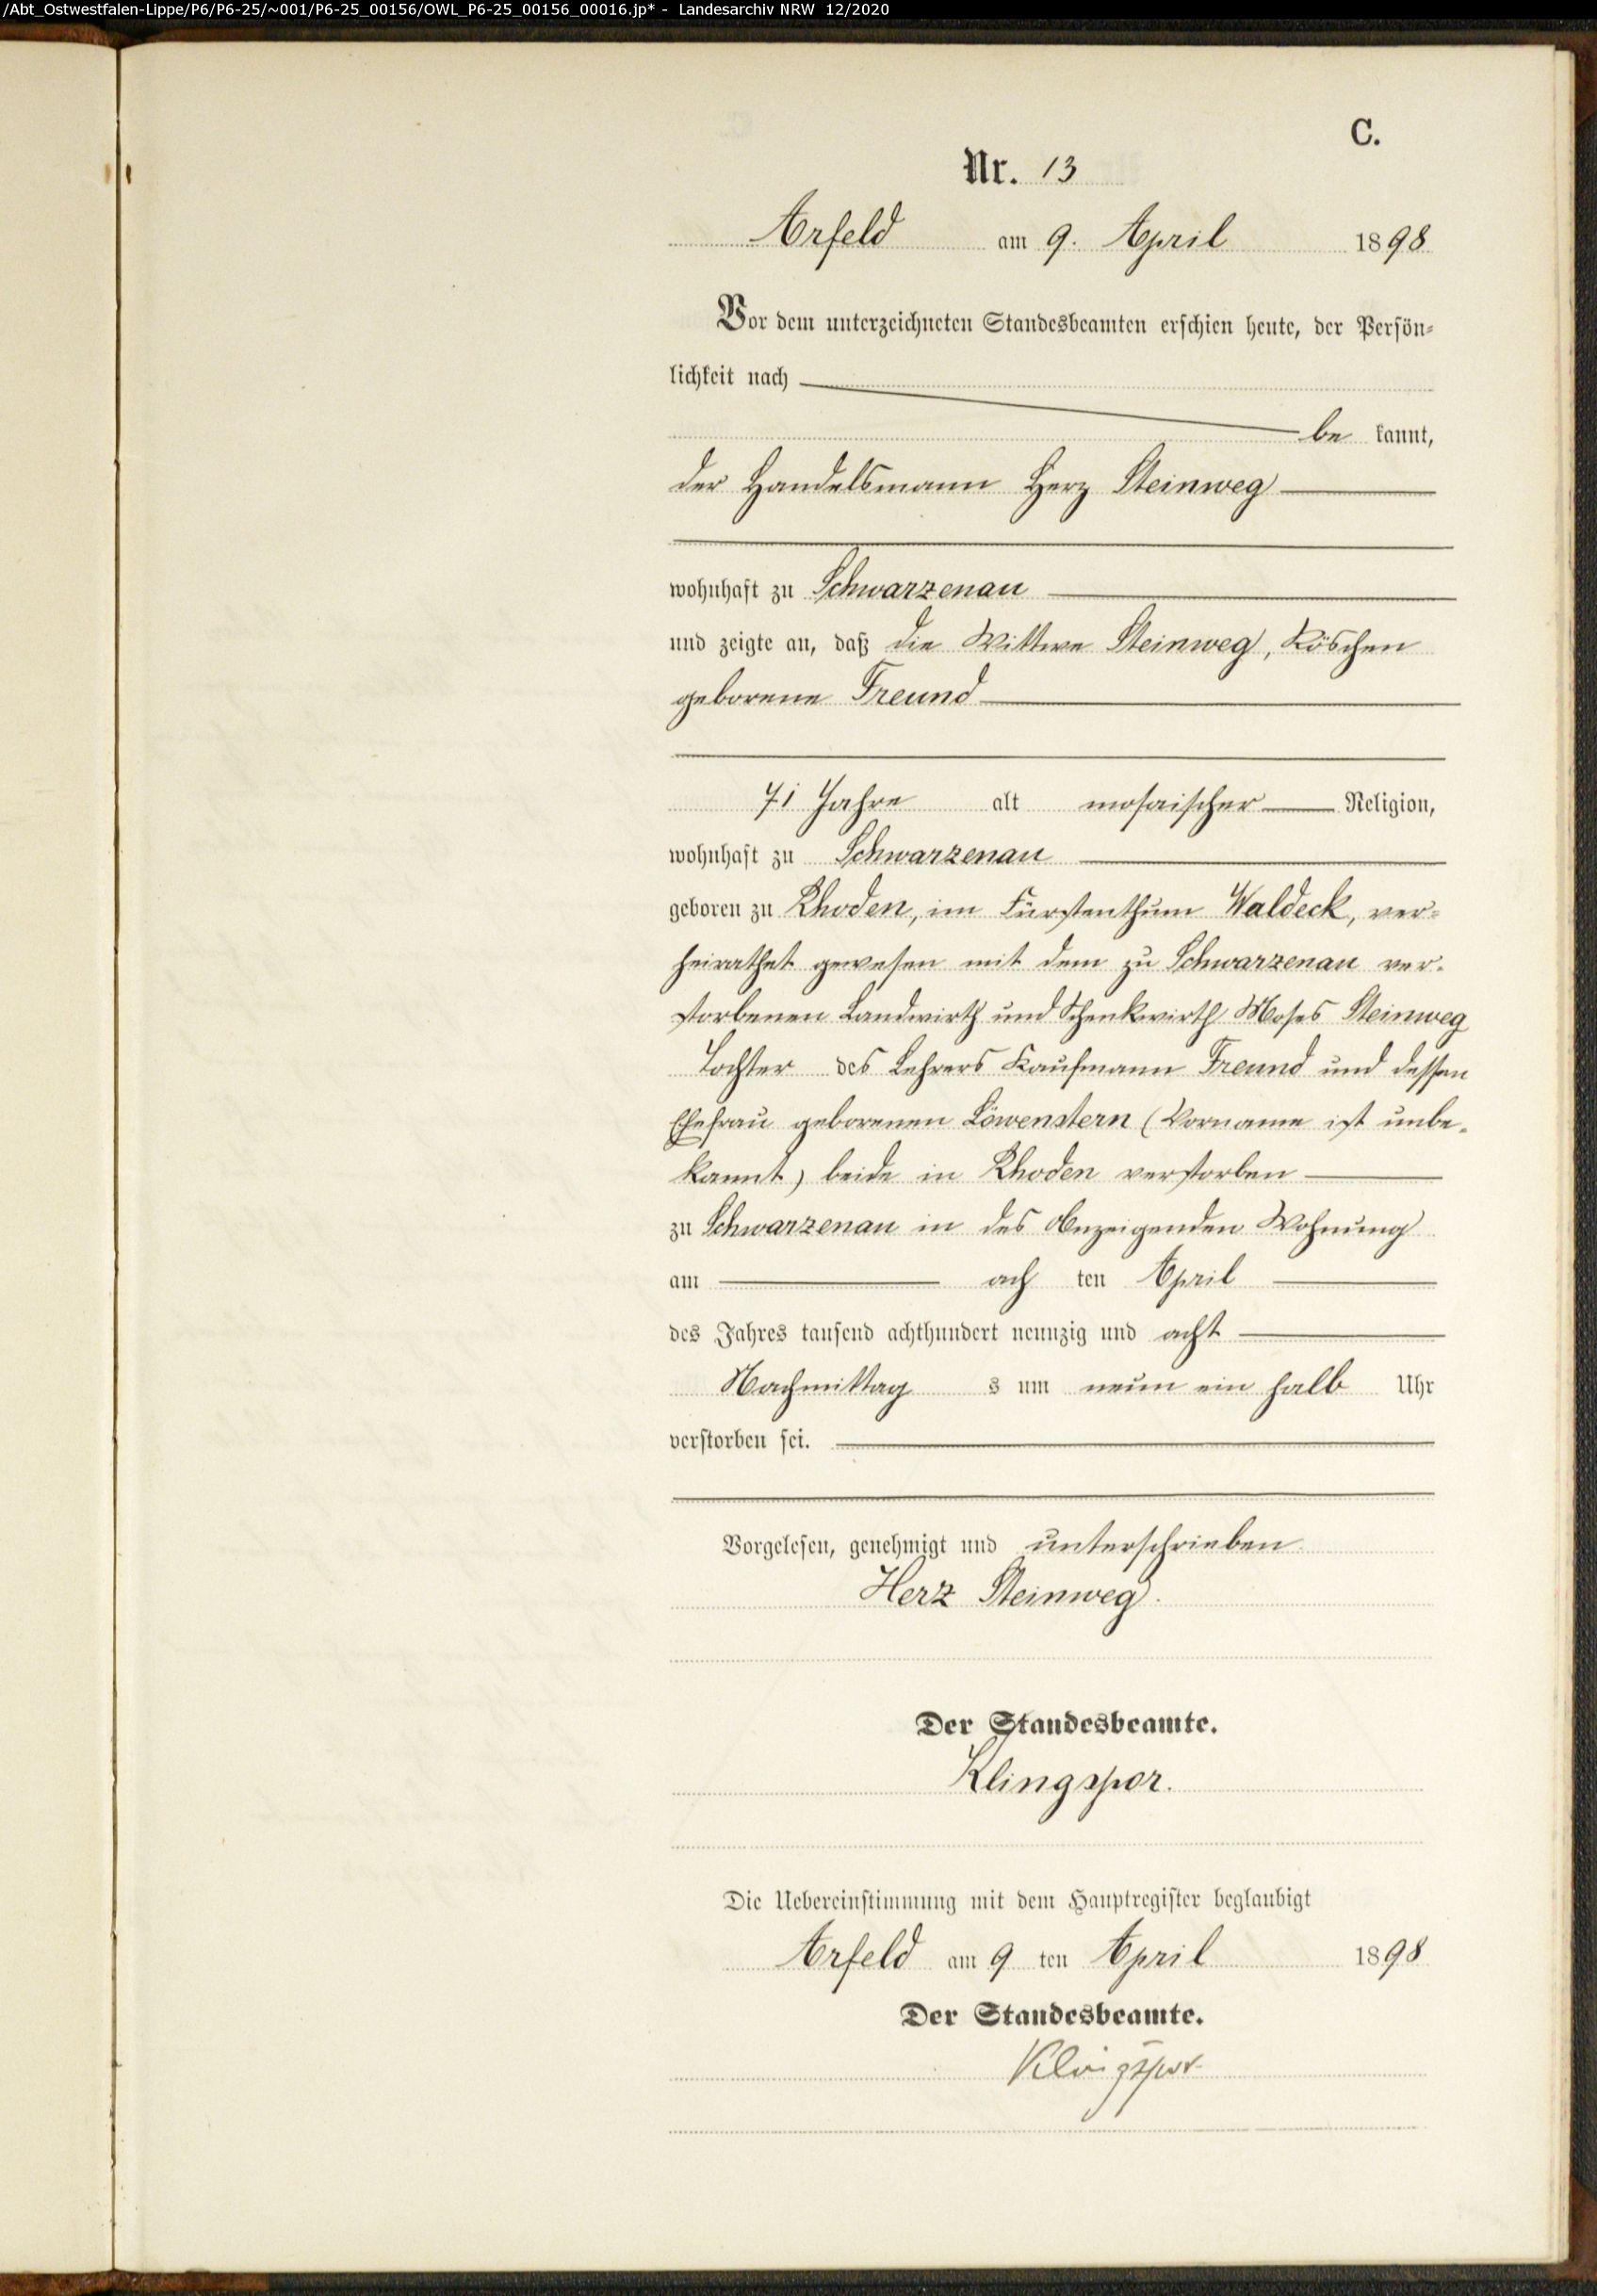 /Abt_Ostwestfalen-Lippe/P6/P6-25/~001/P6-25_00156/OWL_P6-25_00156_00016.jp* - Landesarchiv NRW 12/2020
C.
Nr. 13
Arfeld am 9. April 1898
Vor dem unterzeichneten Standesbeamten erschien heute, der Persön-
lichkeit nach
be kannt,
der Handelsmann Herz Steinweg
wohnhaft zu Schwarzenau
und zeigte an, daß die Wittwe Steinweg, Röschen
geborene Freund
71 Jahre alt mosaischer Religion,
wohnhaft zu Schwarzenau
geboren zu Rhoden, im Fürstenthum Waldeck, ver-
heirathet gewesen mit dem zu Schwarzenau ver-
storbenen Landwirth und Schenkwirth Moses Steinweg
Tochter des Lehrers Kaufmann Freund und dessen
Ehefrau geborenen Löwenstern (Vorname ist unbe-
kannt) beide in Rhoden verstorben
zu Schwarzenau in des Anzeigenden Wohnung
am ach ten April
des Jahres tausend achthundert neunzig und acht
Nachmittag s um neun ein halb Uhr
verstorben sei.
Vorgelesen, genehmigt und unterschrieben
Herz Steinweg.
Der Standesbeamte.
Klingspor.
Die Uebereinstimmung mit dem Hauptregister beglaubigt
Arfeld am 9 ten April 1898
Der Standesbeamte.
Klingspor